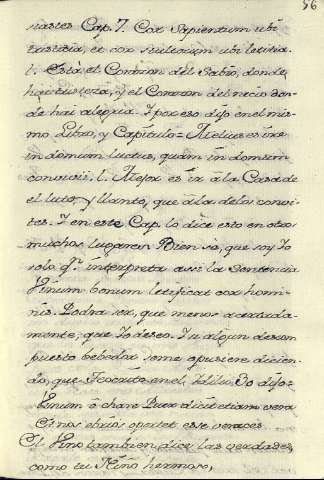 56
siastes Cap. 7. Cor Sapientium ubi
tristicia, et cor stultorum ubi letitia
l. Está el Corazon del Sabio, donde
hai tristeza, y el Corazon del necio don-
de hai alegria. Y por eso dijo en el mis-
mo Libro, y Capitulo = Melius es ire
in domum luctus, quam in domum
convivii. l. Mejor es ir á la Casa de
el luto, y llanto, que á la de los convi-
tes. Y en este Cap. lo dice esto en otros
muchos lugares. Bien se, que soy Yo
solo q.e interpreta assi la Sentencia
Vinum bonum letificat cor homi-
nis. Podra ser, que menos acertada-
mente, que Yo deseo. Y si algun descom
puesto bebedor se me opusiere dicien-
do, que Teocrito en el Idilio 30 dijo =
Vinum ó chare Puer dicitur etiam vera
Et nos ebrios oportet esse veraces
El Vino tambien dice las verdades,
como tu Niño hermoso,